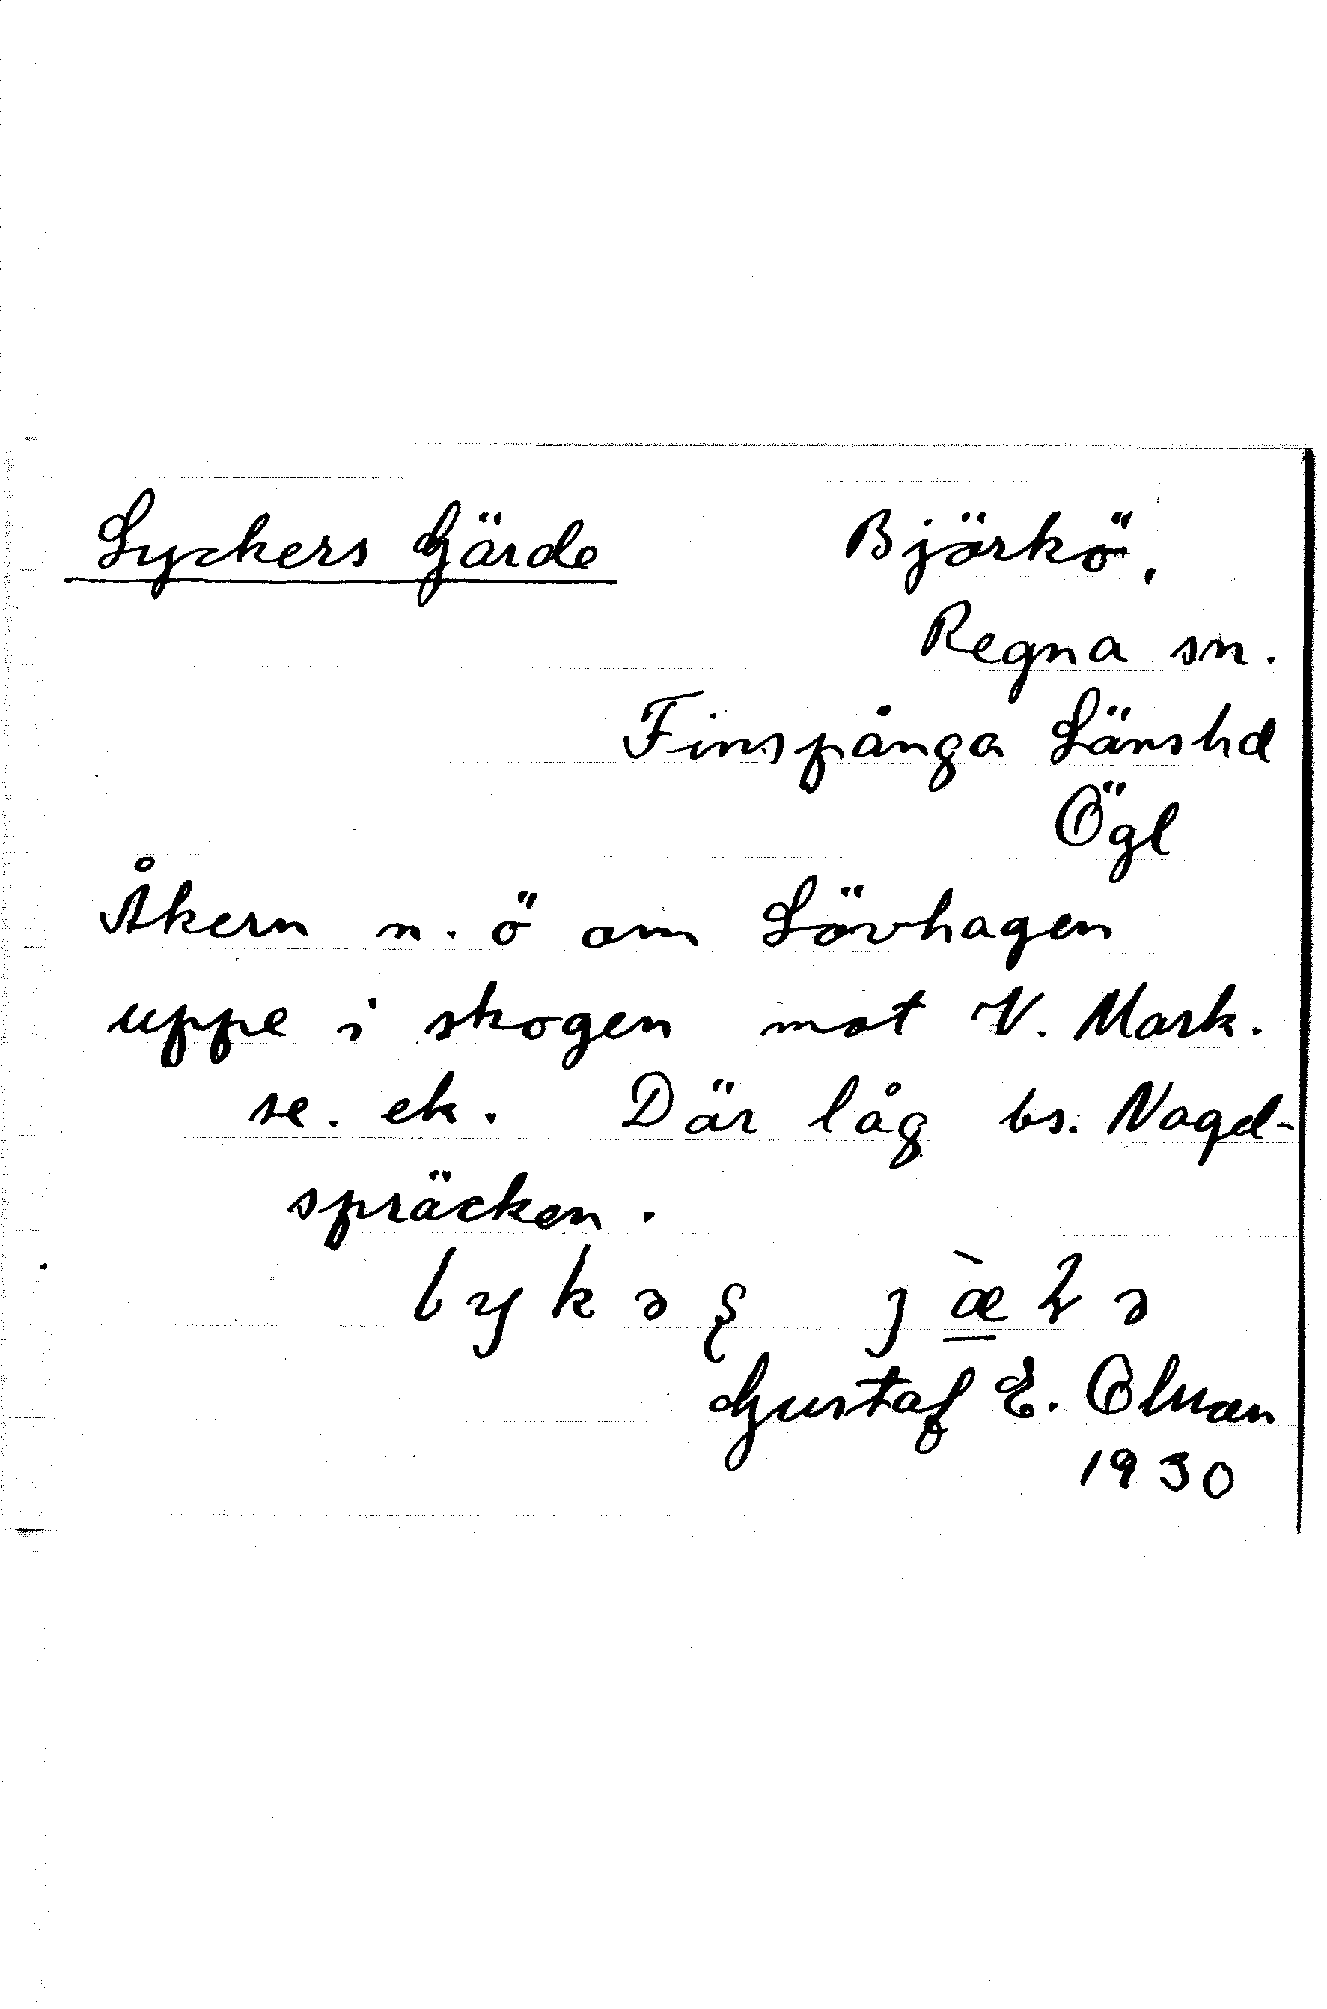 Lyckers Gärde Björkö,
Regna sn.
Finspånga Länshd
Ögl
Åkern n. ö om Lövhagen
uppe i skogen mot V. Mark.
se. ek. Där låg bs. Nagel-
spräcken.
Gustaf E.
1930